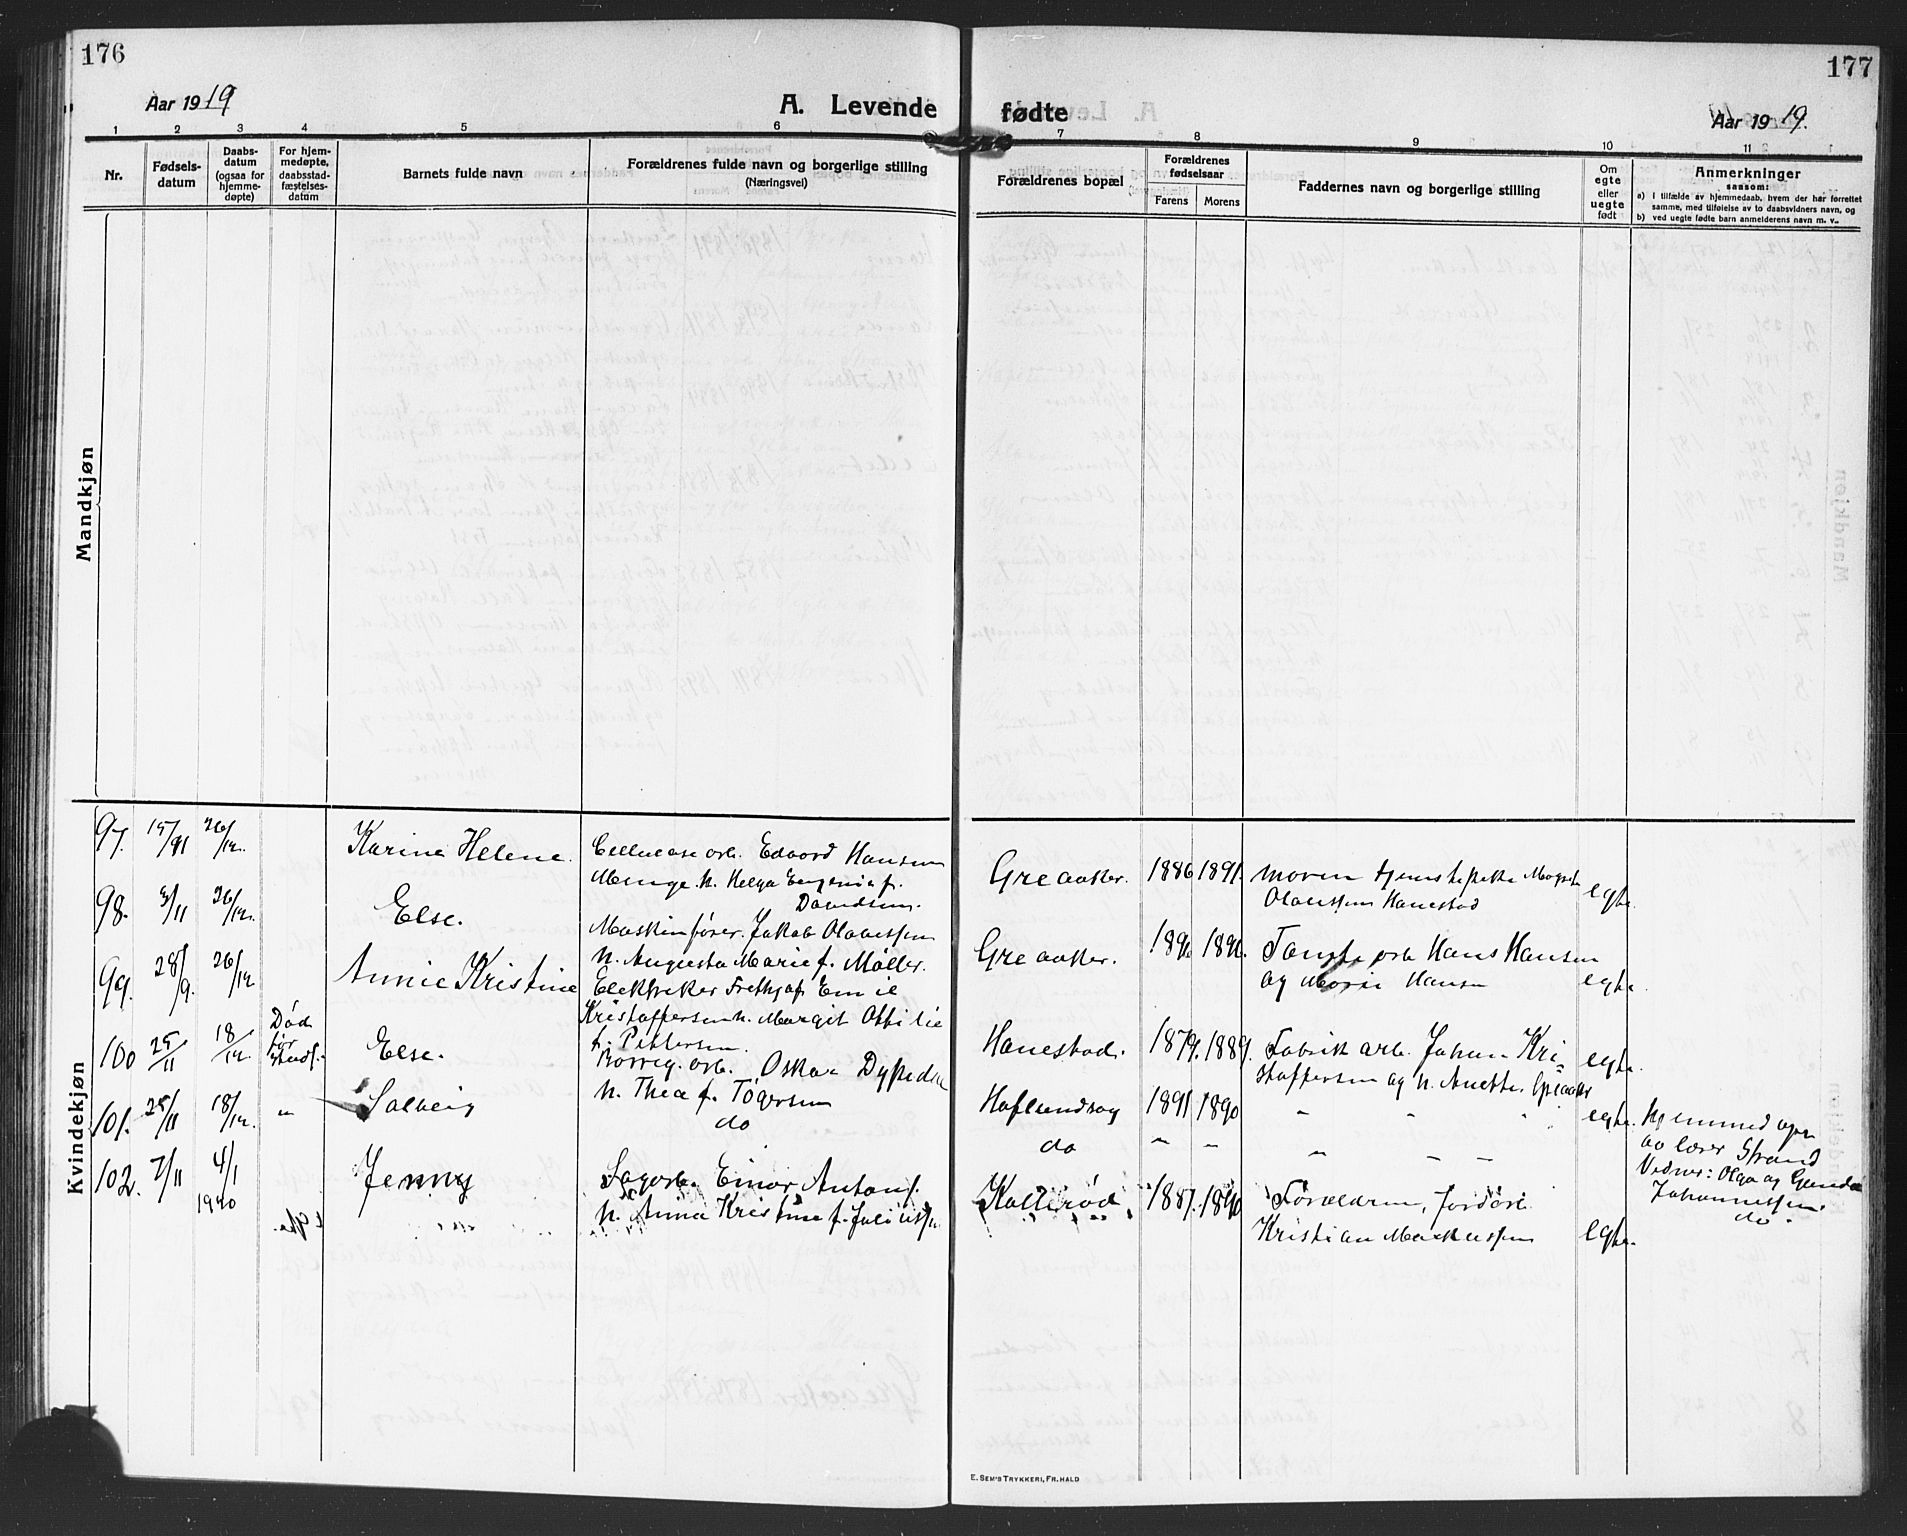 176
Aar 1919
A. Levende
1 2 3 4 5 6
Nr.
Fødsels-
datum
Daabs-
datum
(ogsaa for
hjemme-
døpte)
For hjem-
medøpte,
daabsstad-
fæstelses-
datum
Barnets fulde navn
Forældrenes fulde navn og borgerlige stilling
(Næringsvei)
Mandkjøn
Kvindekjøn
97. 26/12. Karine Helene.
Edvard Hansen
Menge. h. Helga Eugenie f.
Davidsen.
98. 26/12. Else.
Maskinfører. Jakob Olaussen
h. Augusta Marie f. Møller.
99. 28/9. 26/12 Annie Kristine
Elektriker Frithjof Emil
Kristoffersen h. Margit Ottilie
f. Pettersen.
100 25/11 18/12. Død
før
stadf. Else.
Borreg. arb. Oskar
h. Thea f. Tøgersen
101. 25/11 18/12. " Solveig
do
102. 7/11 4/1
1920 Jenny
Sagarb. Einar Antons.
h. Anna Kristine f.
177
fødte
Aar 1919.
7 8 9 10 11
Forældrenes bopæl
Forældrenes
fødselsaar
Farens Morens
Faddernes navn og borgerlige stilling
Om
egte
eller
uegte
født
Anmerkninger
sansom:
a) I tilfælde av hjemmedaab, hvem der har forrettet
samme, med tilføielse av to daabsvidners navn, og
b) ved uegte fødte barn anmelderens navn m. v..
Greaaker. 1886 1891. moren tjenestepike
Olaussen Hanestad egte.
Greaaker. Hans Hansen
og Marie Hansen egte.
Hanestad. 1879. 1889. Fabrik arb. Johan Kri-
stoffersen og h. Anette, Greaaker egte.
Hafslundsøg 1891 1890 " " " egte.
Hjemmed. 
av lærer Strand
Vidner: Olga og
Johannessen.
do " " " " "
do.
Kallerød. 1887. 1890 Forældrene,
Kristian Markussen egte.
E. SEM'S TRYKKERI, FR.HALD